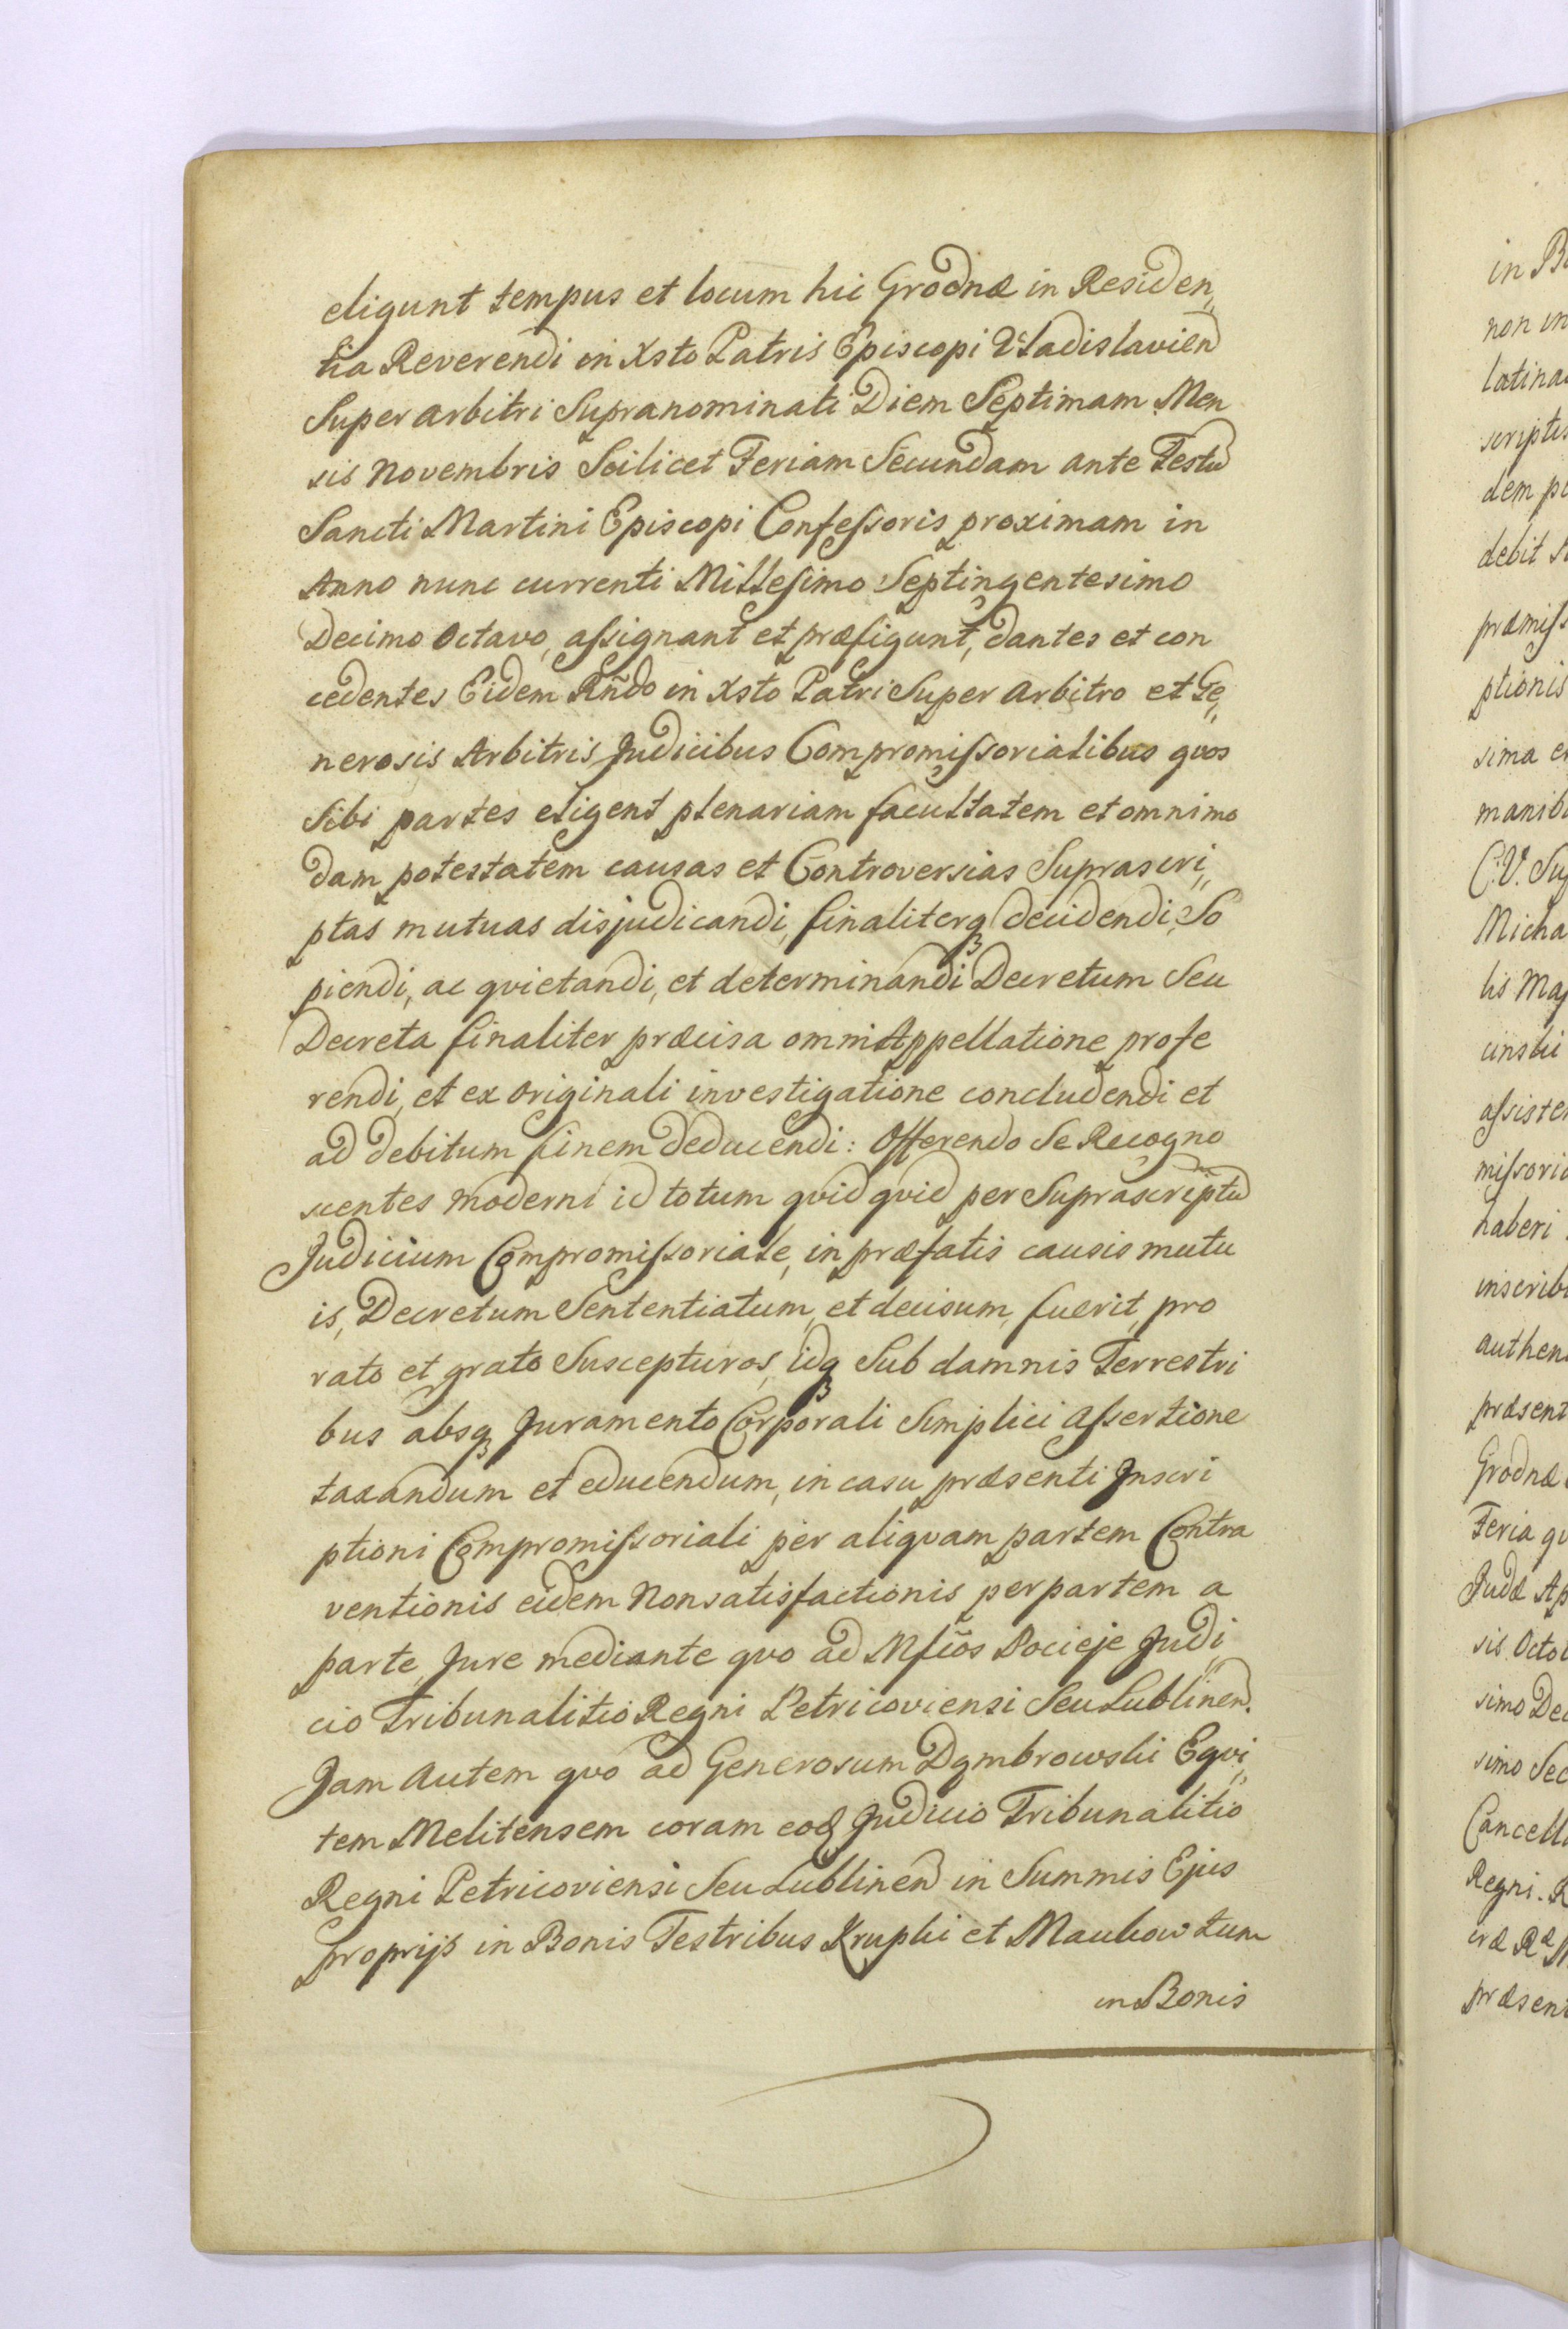 eligunt tempus et locum hic Grodnæ in Residen„
tia Reverendi in Xsto Patris Episcopi Vladislavien
Super arbitri Supranominati Diem Septimam Men
sis Novembris Scilicet Feriam Secundam ante Festu
Sancti Martini Episcopi Confeſsoris proximam in
Anno nunc currenti Milleſimo Septingentesimo
Decimo Octavo, aſsignant et præfigunt, dantes et con
cedentes Eidem Rñdo in Xsto Patri Super Arbitro et Ge„
nerosis Arbitris Judicibus Compromiſsorialibus qvos
Sibi partes eligent plenariam facultatem et omnimo
dam potestatem causas et Controversias Suprascri„
ptas mutuas disjudicandi, finaliterqꝫ decidendi, So
piendi, ac qvietandi, et determinandi Decretum Seu
Decreta finaliter præcisa omni Appellatione profe
rendi, et ex Originali investigatione concludendi et
ad debitum finem deducendi: Offerendo Se Recogno
scentes moderni id totum qvid qvid per Suprascriptu
Judicium Compromiſsoriale, in præfatis causis mutu
is, Decretum Sententiatum, et decisum, fuerit, pro
rato et grato Suscepturos, idqꝫ Sub damnis Terrestri
bus absqꝫ Juramento Corporali Simplici aſsertione
taxandum et educendum, in casu præsenti Inscri
ptioni Compromiſsoriali per aliqvam partem Contra
ventionis eidem Nonsatisfactionis per partem a
parte, Jure mediante qvo ad Mficos Pocieje Judi„
cio Tribunalitio Regni Petricoviensi Seu Lublinen.
Jam Autem qvo ad Generosum Dąmbrowski Eqvi„
tem Melitensem coram eod Judicio Tribunalitio
Regni Petricoviensi Seu Lublinen in Summis Ejus
proprijs in Bonis Testribus Krupki et Maukow tum
in Bonis
in B
non in
latina
scriptis
dem p
debit
præmiſs
ptionis
sima e
manib
C.V. Su
Micha
lis Ma
cinski
aſsiste
miſsori
haberi
inscrib
authen
præsent
Grodnæ
Feria qv
Judæ Ap
sis Octo
simo De
simo Sec
Cancell
Regni. R
præsen